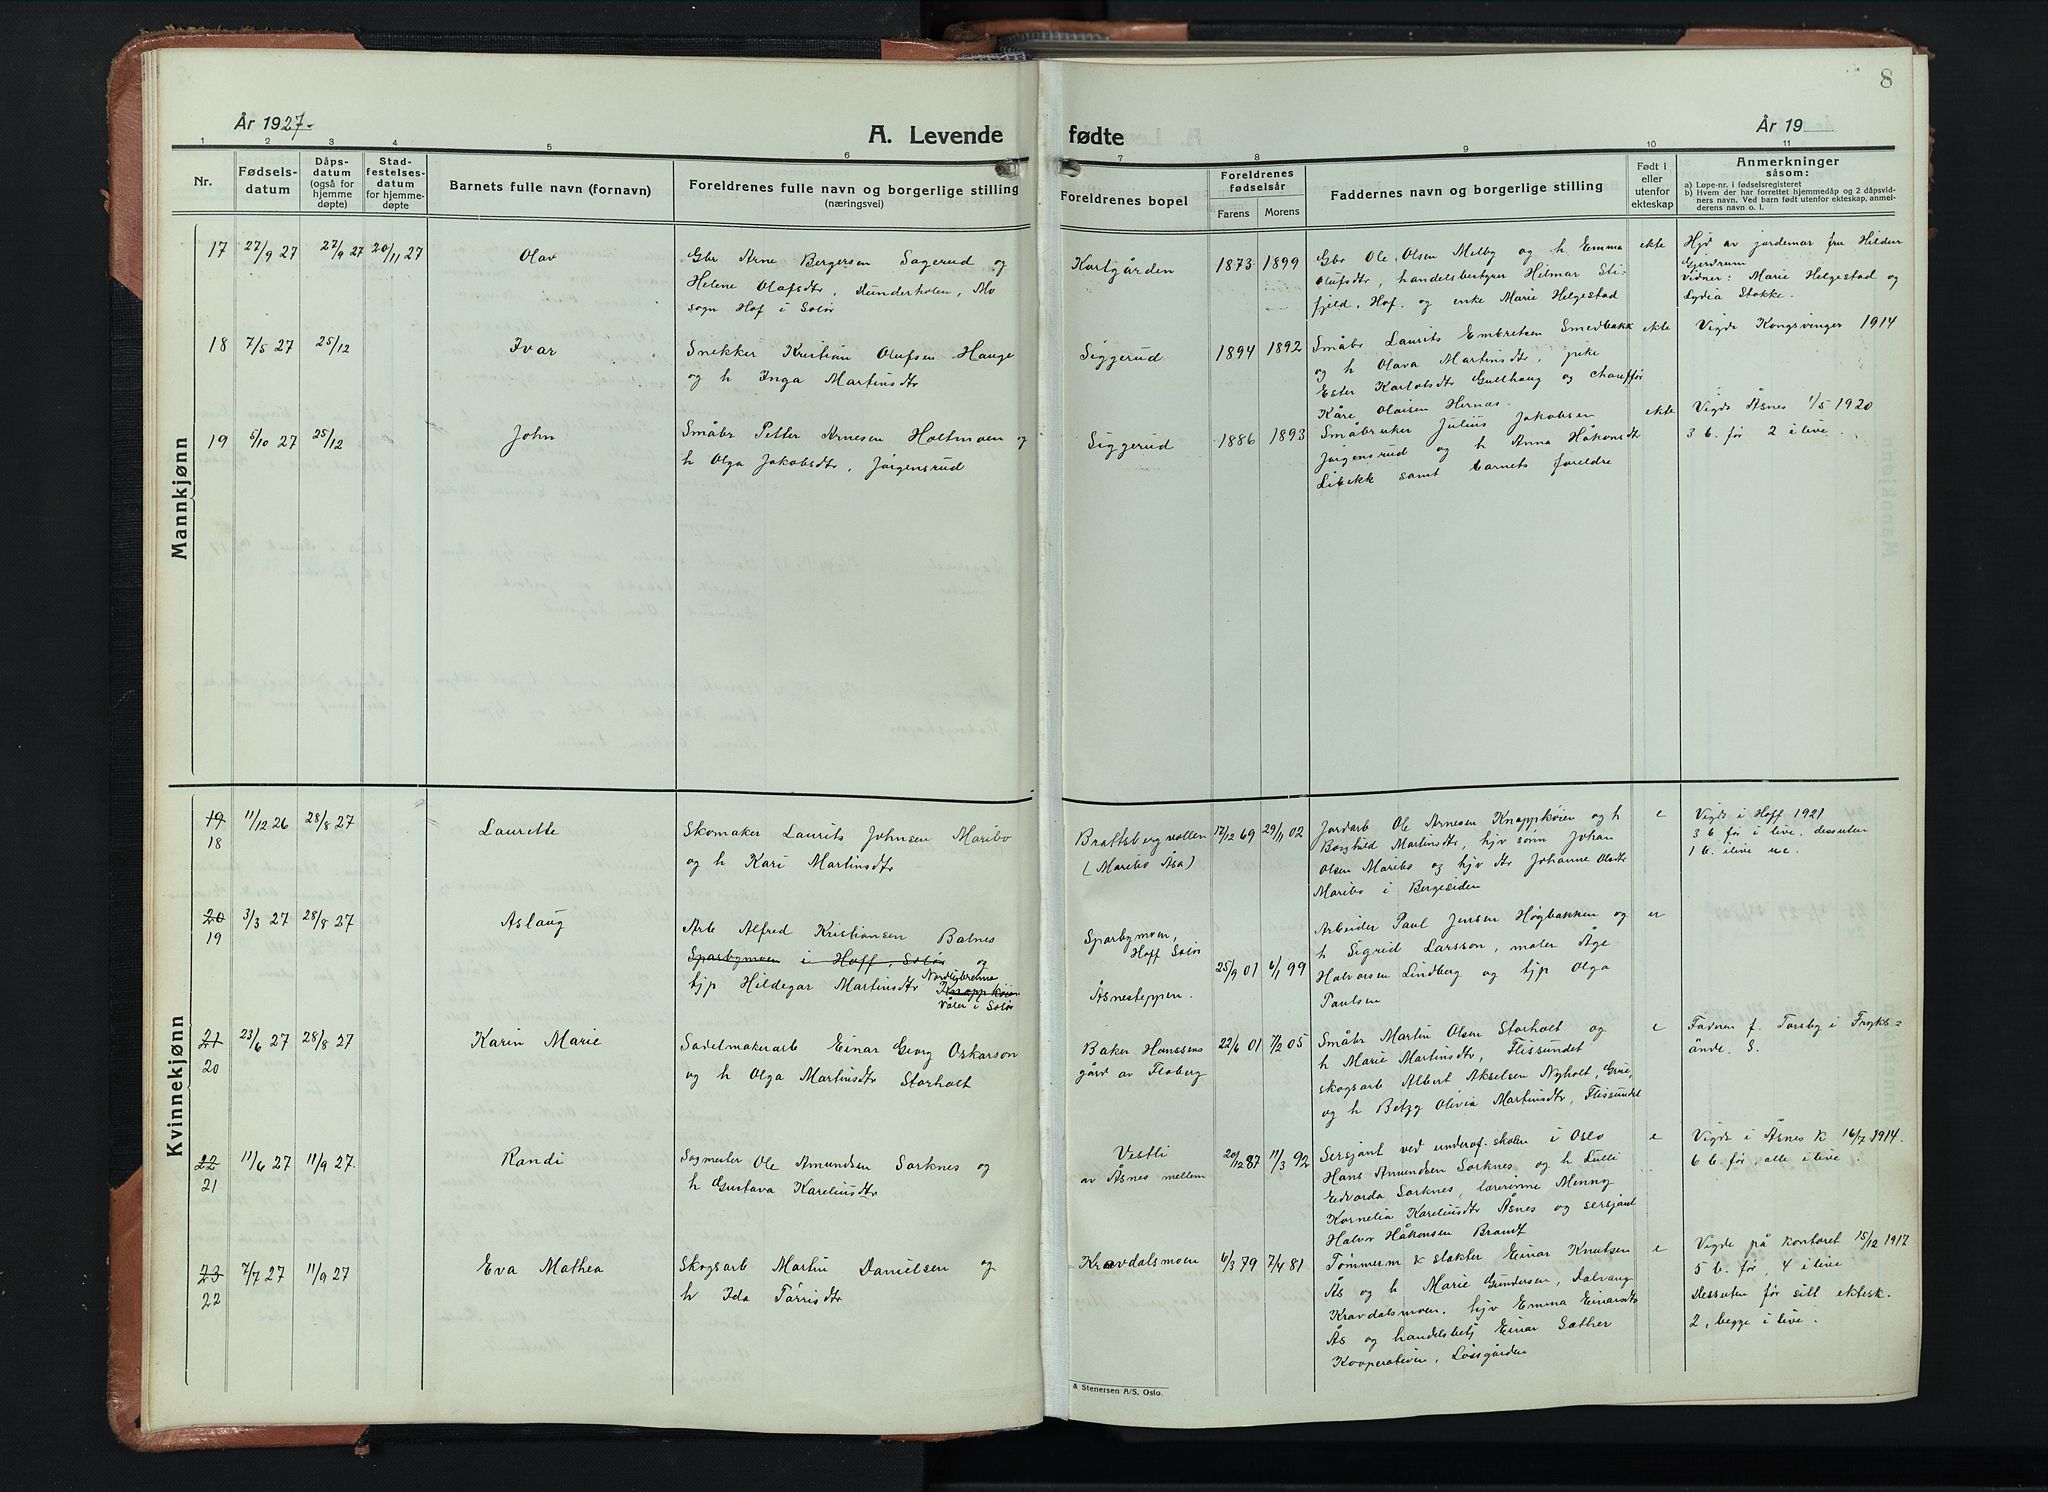 År 1927.
A. Levende
fødte
År 19
8
1 2 3 4 5 6
7 8 9 10 11
Nr.
Fødsels-
datum
Dåps-
datum
(også for
hjemme
døpte)
Stad-
festelses-
datum
for hjemme-
døpte
Barnets fulle navn (fornavn)
Foreldrenes fulle navn og borgerlige stilling
(næringsvei)
Foreldrenes bopel
Foreldrenes
fødselsår
Farens Morens
Faddernes navn og borgerlige stilling
Født i
eller
utenfor
ekteskap
Anmerkninger
såsom:
a) Løpe-nr. i fødselsregisteret
b) Hvem der har forrettet hjemmedåp og 2 dåpsvid-
ners navn. Ved barn født utenfor ekteskap, anmel-
derens navn o. l.
Mannkjønn
17 27/9 27 27/9 27 20/11 27 Olav
Gbr Arne Bergersen Sagerud og
Helene Olafsdtr, Dunderholen, Mo
sogn Hof i Solør
Kortgården 1873 1899
Gbr Ole Olsen Melby og h Emma
Olufsdtr, handelsbestyrer Hilmar Sti-
fjeld, Hof, og enke Marie Helgestad
ekte
Hjd av jordemor fru Hildur
Gjerdrum
Vidner: Marie Helgestad og
Lydia Stokke.
18 7/5 27 25/12 Ivar
Snekker Kristian Olufsen Hauge
og h Inga Martinsdtr
Siggerud 1894 1892
Småbr Laurits Embretsen Smedbakk
og h Olava Martinsdtr, pike
Ester Karlotsdtr Gullhaug og chauffør
Kåre Olaisen Hernæs.
ekte
Vigde Kongsvinger 1914
19 5/10 27 25/12 John
Småbr Petter Arnesen Holtmoen og
h Olga Jakobsdtr, Jørgensrud
Siggerud 1886 1893
Småbruker Julius Jakobsen
Jørgensrud og h Anna Håkonsdtr
Libekk samt barnets foreldre
ekte
Vigde Åsnes 1/5 1920
3 b. før 2 i live.
Kvinnekjønn
19
18
11/12 26 28/8 27 Laurette
Skomaker Laurits Johnsen Maribo
og h Kari Martinsdtr
Brattsbergvollen
(Maribo Åsa)
17/12 69 29/11 02
Jordarb Ole Arnesen Knappkøien og h
Borghild Martinsdtr, hjv sønn Johan
Olsen Maribo og hjv dtr Johanne Olsdtr
Maribo i Bergesiden
e
Vigde i Hoff 1921
3 b før i live, dessuten
1 b. ilive ue.
20
19
3/3 27 28/8 27 Aslaug
Arb Alfred Kristiansen Balnes
Sparbymoen i Hoff, Solør og
tjp Hildegar Martinsdtr Nordligbrenne
Knappkøien
Våler i Solør
Sparbymoen,
Hoff Solør
Åsnesteppen.
25/9 01 6/1 99
Arbeider Paul Jensen Høgbakken og
h Sigrid Larsson, maler Åge
Halvorsen Lindberg og tjp Olga
Paulsen
21
20
23/6 27 28/8 27 Karin Marie
Sadelmakerarb Einar Georg Oskarson
og h Olga Martinsdtr Storholt
Baker Hanssens
gård av Floberg
22/6 01 7/2 05
Småbr Martin Olsen Storholt og
h Marie Martinsdtr, Flissundet
skogsarb Albert Akselsen Nyholt, Grue,
og h Betzy Olivia Martinsdtr, Flissundet
e
Faderen f. Torsby i Fryks-
ände. S.
22
21
11/6 27 11/9 27. Randi
Sogmester Ole Amundsen Sorknes og
h Gustava Kareliusdtr
Vestli
av Åsnes mellem
20/12 87 11/3 92
Sersjant ved underof. skolen i Oslo
Hans Amundsen Sorknes og h Lulli
Edvarda Sorknes, lærerinne Minny
Kornelia Kareliusdtr Åsnes og sersjant
Halvor Håkonsen Brandt
e
Vigde i Åsnes k 16/7 1914.
6 b. før, alle i live.
23
22
7/7 27 11/9 27 Eva Mathea
Skogsarb Martin Danielsen og
h Ida Tørrisdtr
Kravdalsmoen 6/3 79 7/4 81
Tømmerm & slakter Einar Knutsen
Ås og h Marie Gundersen, Dalvang
Kravdalsmoen, hjv Emma Einarsdtr
Ås og handelsbetj Einar Sæther
Kooperativen, Løssgården
e
Vigde på kontoret 15/12 1917
5 b. før, 4 i live
Dessuten før sitt ektesk.
2, begge i live.
& Stenersen A/S, Oslo.